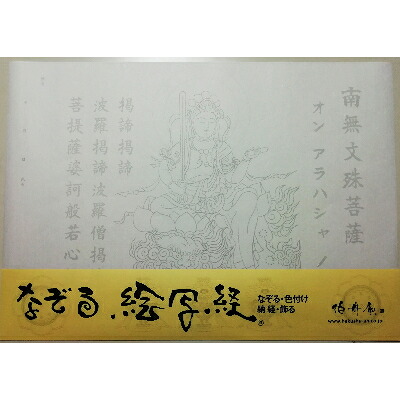 南無文殊菩薩
オン アラハシャノ
掲諦掲諦
波羅掲諦波羅僧掲
菩提薩婆訶般若心
なぞる絵写経
なぞる・色付け
納経・飾る
www.hakushu-an.co.jp